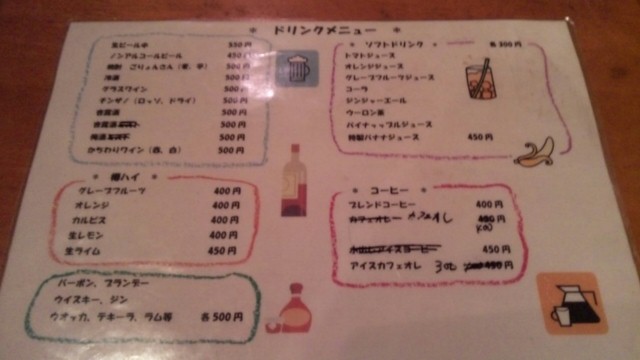 ＊ ドリンクメニュー ＊
生ビール中 550円
ノンアルコールビール 450円
焼酎 ごりょんさん（麦、芋） 500円
冷酒 500円
グラスワイン 500円
チンザノ（ロッソ、ドライ） 500円
500円
500円
500円
かちわりワイン（赤、白） 500円
＊ 樽ハイ ＊
グレープフルーツ 400円
オレンジ 400円
カルピス 400円
生レモン 400円
生ライム 450円
バーボン、ブランデー
ウイスキー、ジン
ウオッカ、テキーラ、ラム等 各500円
＊ ソフトドリンク ＊ 各300円
トマトジュース
オレンジジュース
グレープフルーツジュース
コーラ
ジンジャーエール
ウーロン茶
パイナップルジュース
特製バナナジュース 450円
＊ コーヒー ＊
ブレンドコーヒー 400円
カフェオレー カフェオレ 450円
400
水出しアイスコーヒー 450円
アイスカフェオレ 300 450円